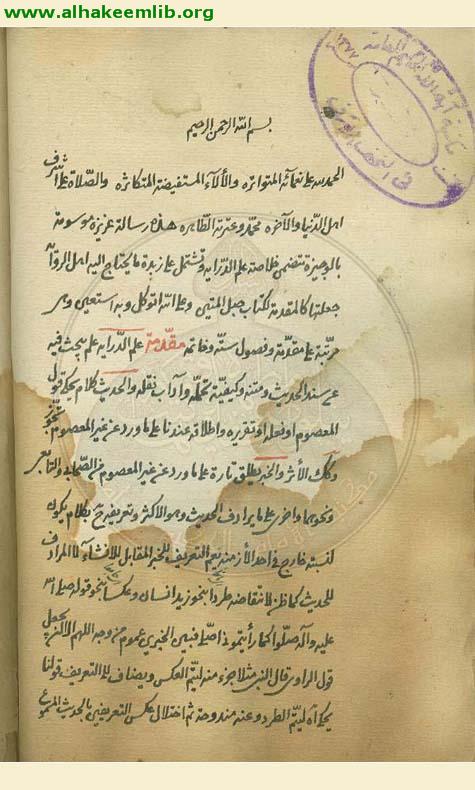 www.alhakeemlib.org
بسم الله الرحمن الرحيم
الحمد لله على نعمائه المتواتره والآلاء المستفيضة المتكاثره والصلاة على اشرف
اهل الدنيا والآخره محمد وعترته الطاهره هذه رسالة عزيزة موسومة
بالوجيزة تتضمن خلاصة علم الدراية وتشتمل على زبدة ما يحتاج اليه اهل الرواية
جعلتها كالمقدمة لكتاب حبل المتين وعلى الله اتوكل وبه استعين وهي
مرتبة على مقدمة وفصول ستة وخاتمة مقدمة علم الدراية علم يبحث فيه
عن سند الحديث ومتنه وكيفية تحمله وآداب نقله والحديث كلام يحكي قول
المعصوم او فعله او تقريره واطلاقه عندنا على ما ورد عن غير المعصوم تجوز
وكذلك الأثر والخبر يطلق تارة على ما ورد عن غير المعصوم من الصحابي والتابعي
ونحوهما واخرى على ما يرادف الحديث وهو الاكثر وتعريفه ح بكلام يكون
لنسبته خارج في احد الأزمنة يعم التعريف للخبر المقابل للانشاء لا المرادف
للحديث كما ظن لانتقاضه طردا بنحو زيد انسان وعكسا بنحو قوله صلى الله
عليه وآله صلوا كما رأيتموني اصلي فبين الخبرين عموم من وجه اللهم الا ان يجعل
قول الراوي قال النبي مثلا جزء منه ليتم العكس ويضاف الى التعريف قولنا
يحكي آه ليتم الطرد وعنه مندوحة ثم اختلال عكس التعريفين بالحديث المسموع